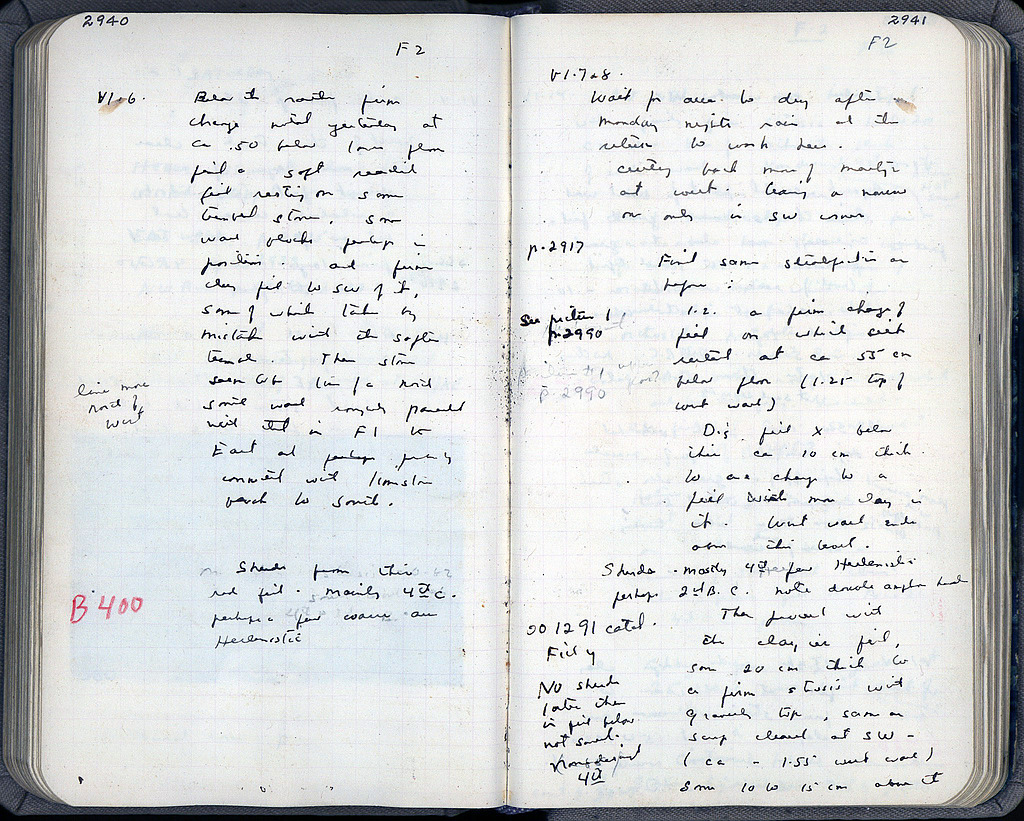 2940
F2
VI.6.
Below the south firm
change noted yesterday at
ca .50 below lower floor
fill a soft reddish
fill resting on some
tumbled stone. Some
wall blocks perhaps in
position and firm
clay fill to SW of it,
some of which taken by
mistake with the softer
The stones
seem like line of a
south wall roughly parallel
with that in F1 to
East and perhaps
connect with limestone
to south.
line more
north of
west
Sherds from this
red fill. mainly 4th c.
perhaps a few coarse are
Hellenistic
B 400
2941
F2
VI.7&8.
Wait for area to dry after
Monday nights rain and then
return to work here.
cutting back more of
at west leaving a narrow
one only in SW corner
p. 2917
Find same stratification as
before:
See picture 1
p. 2990
1.2. a firm change of
fill on which
rested at ca 55 cm
p. 2990
below floor (1.25 top of
west wall)
Dig fill X below
this ca 10 cm thick.
to a change to a
fill with more clay in
it. West wall ends
above this level.
Sherds. mostly 4th few Hellenistic
perhaps 2nd B.C. note double
OO 1291 catal.
Then proceed with
the clayier fill,
some 20 cm thick to
a firm stosis with
gravelly top, same as
cleared at SW -
(ca - 1.55 west wall)
Some 10 to 15 cm above it
No sherds
later than
in fill below
not saved.
4th